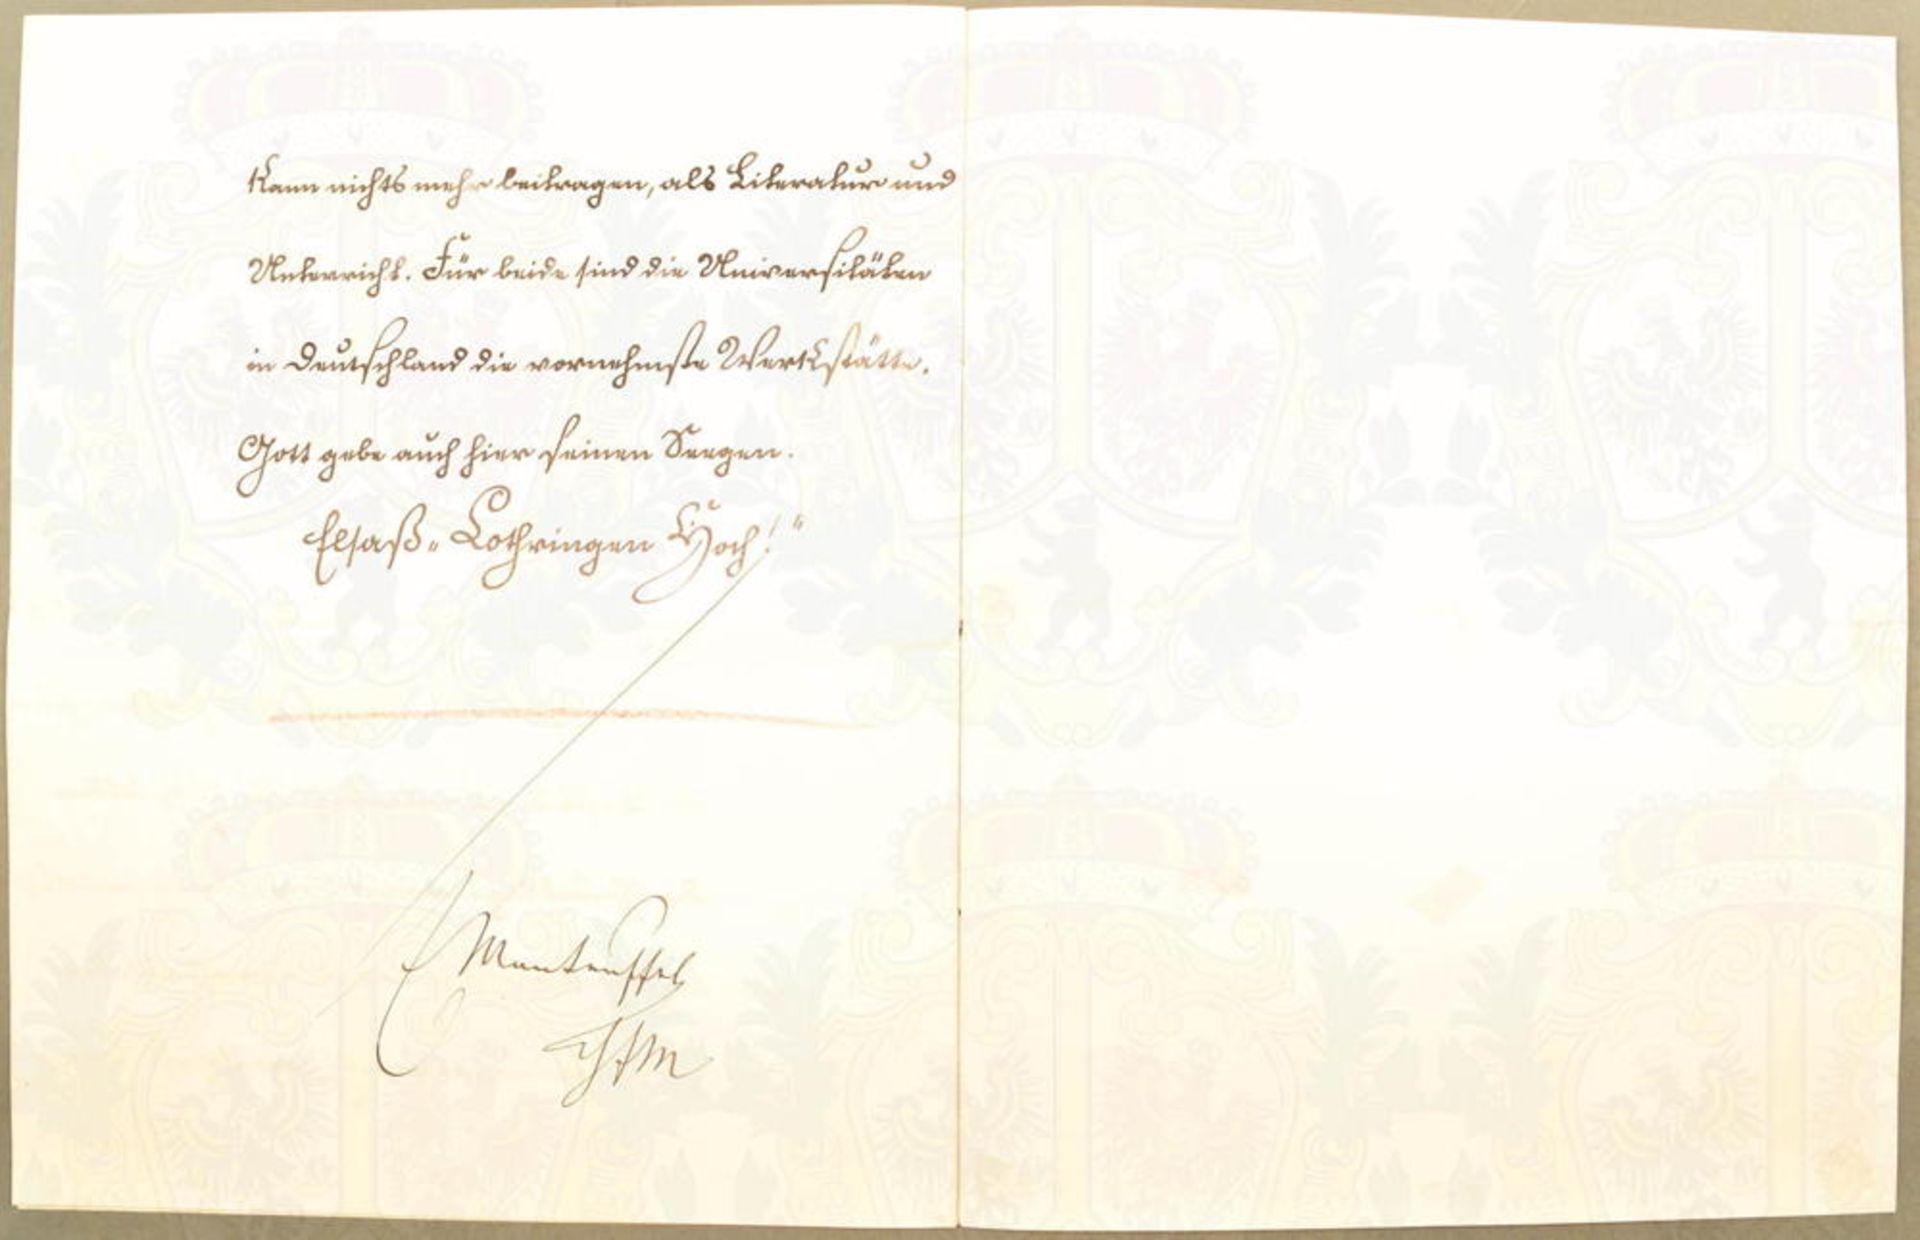 kann nichts mehr beitragen, als Literatur und
Unterricht. Für beide sind die Universitäten
in Deutschland die vornehmste Werkstätte.
Gott gebe auch hier seinen Seegen.
Elsaß-Lothringen Hoch!“
Manteuffel
GFM